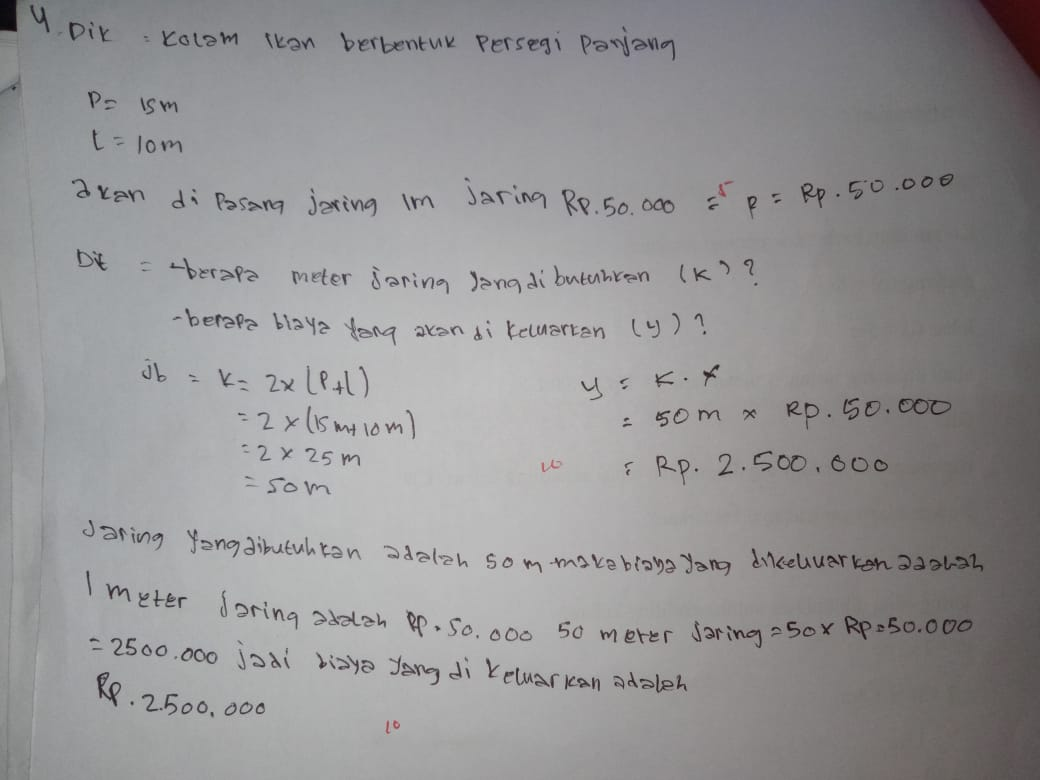 4. Dik : Kolam ikan berbentuk Persegi Panjang
P = 15m
l = 10m
akan di Pasang jaring 1m jaring RP.50.000 = 5 P = Rp.50.000
Dit = - berapa meter jaring yang di butuhkan (K)?
- berapa biaya yang akan di keluarkan (y)?
Jb = K = 2x (P+l)
= 2 x (15m+10m)
= 2 x 25m
= 50m
y = K . x
= 50m x RP.50.000
10 = Rp. 2.500.000
Jaring yang dibutuhkan adalah 50 m maka biaya yang dikeluarkan adalah
1 meter Jaring adalah RP.50.000 50 meter Jaring = 50x Rp=50.000
= 2500.000 jadi biaya yang di keluarkan adaleh
RP.2.500,000
10